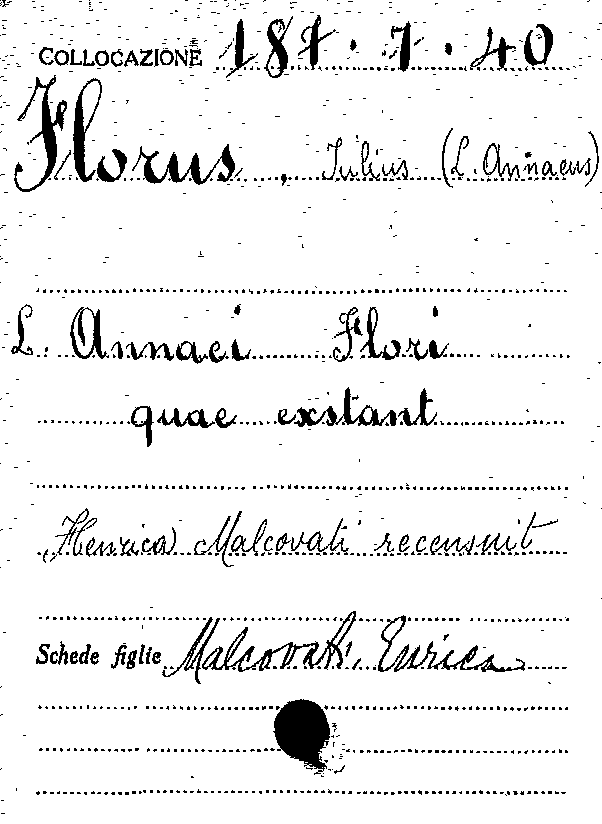 COLLOCAZIONE 187.7.40
Florus, Iulius (L. Annaeus)
L. Annaei Flori
quae exstant
Henrica Malcovati recensuit
Schede figlie Malcovati, Enrica